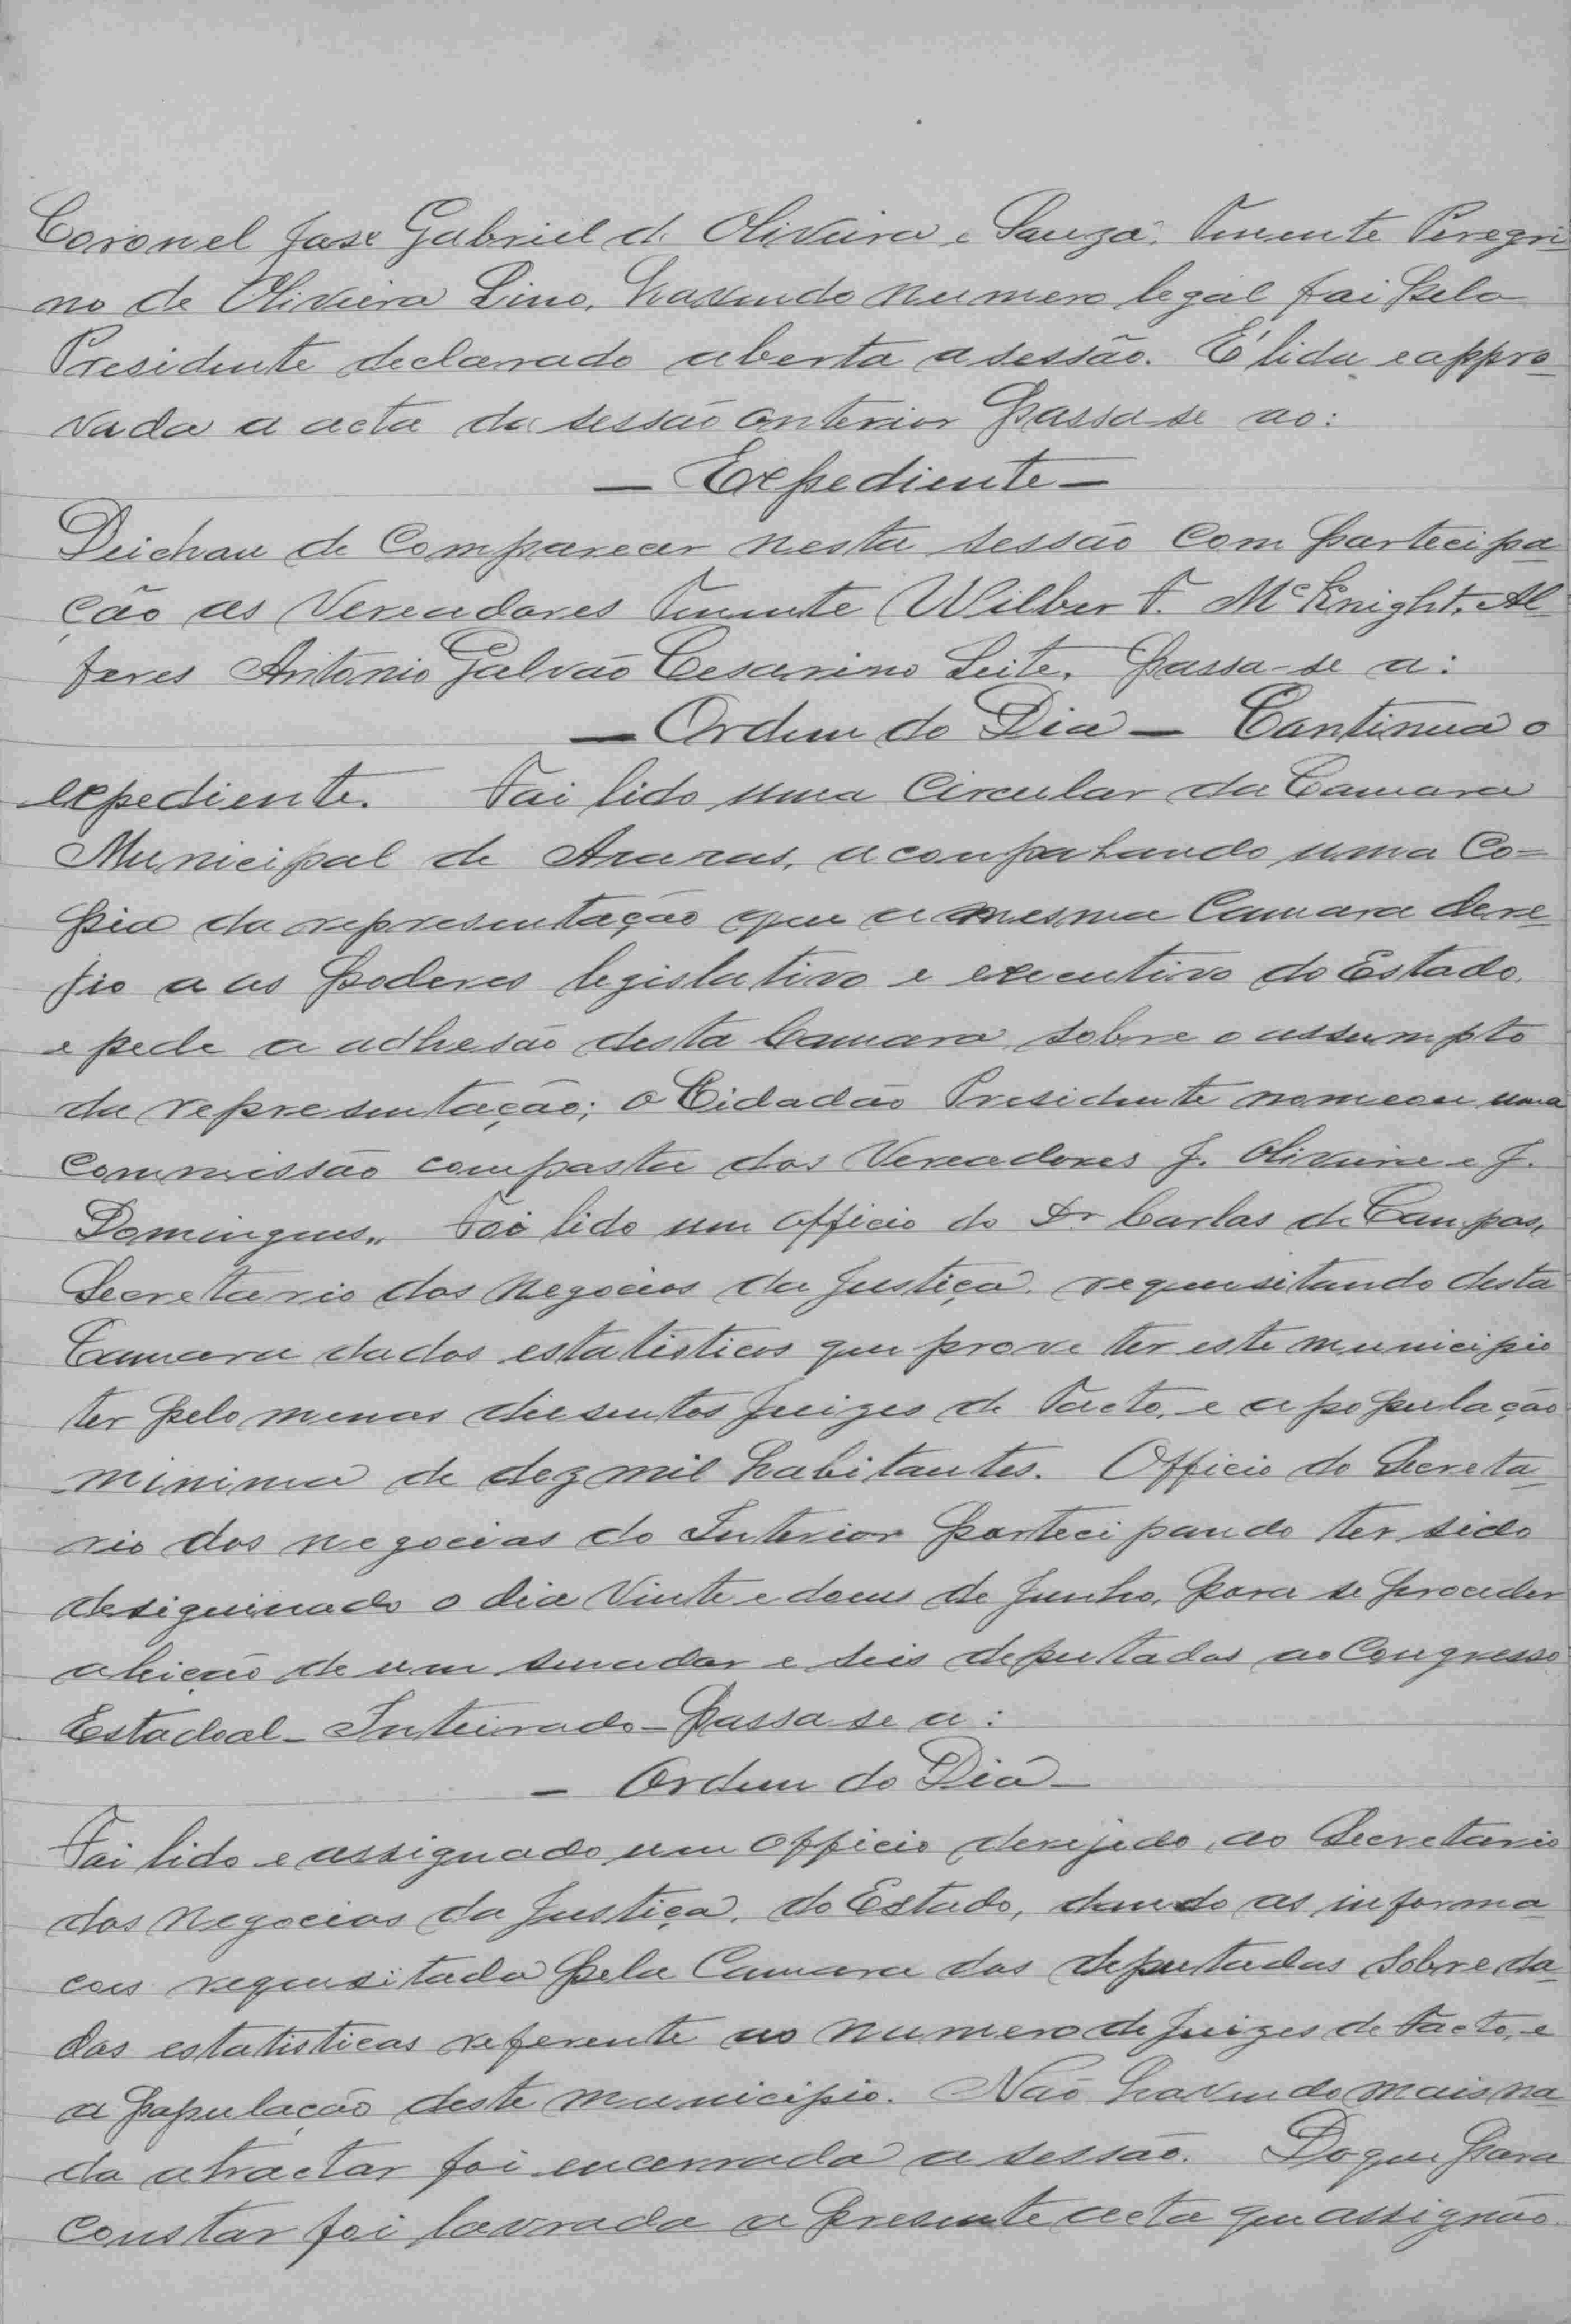 Coronel José Gabriel d. Oliveira e Souza. Tenente Peregri
no de Oliveira Lino, havendo numero legal foi pelo
Presidente declarado aberta a sessão. É lida e appro
vada a acta da sessão anterior passa-se ao:
— Expediente —
Deichau de Comparecer nesta sessão Com partecipa
ção os Vereadores Tenente Wilber F. McKnight, Al
feres Antonio Galvão Cesarino Leite, passa-se a:
— Ordem do Dia — Continua o
expediente. Foi lido uma Circular da Camara
Municipal de Araras, acompahando uma Co=
pia da representação que a mesma Camara dere
jio a os poderes legislativo e executivo do Estado,
e pede a adhesão desta Camara sobre o assumpto
da representação; o Cidadão Presidente nomeou uma
Commissão composta dos Vereadores J. Oliveira e J.
Domingues,, Foi lido um officio do Dr Carlos de Campos,
Secretario dos Negocios da Justiça. requisitando desta
Camara dados estatisticos que prove ter este municipio
ter pelo menos duzentos Juizes de Facto, e a população
minima de dez mil habitantes. Officio do Secreta
rio dos negocios do Interior partecipando ter sido
desiguinado o dia Vinte e dous de Junho, para se proceder
aleição de um senador e seis deputados ao Congresso
Estadoal — Inteirado — Passa-se a:
— Ordem do Dia —
Foi lido e assignado um officio derejedo ao Secretario
dos Negocios da Justiça, do Estado, dando as informa
cois requisitada pela Camara dos deputados sobre da
dos estatisticos referente ao numero de Juizes de Facto, e
a população deste municipio. Não havendo mais na
da a tractar foi encerrada a sessão. Do que para
constar foi lavrada a presente acta que assignão.